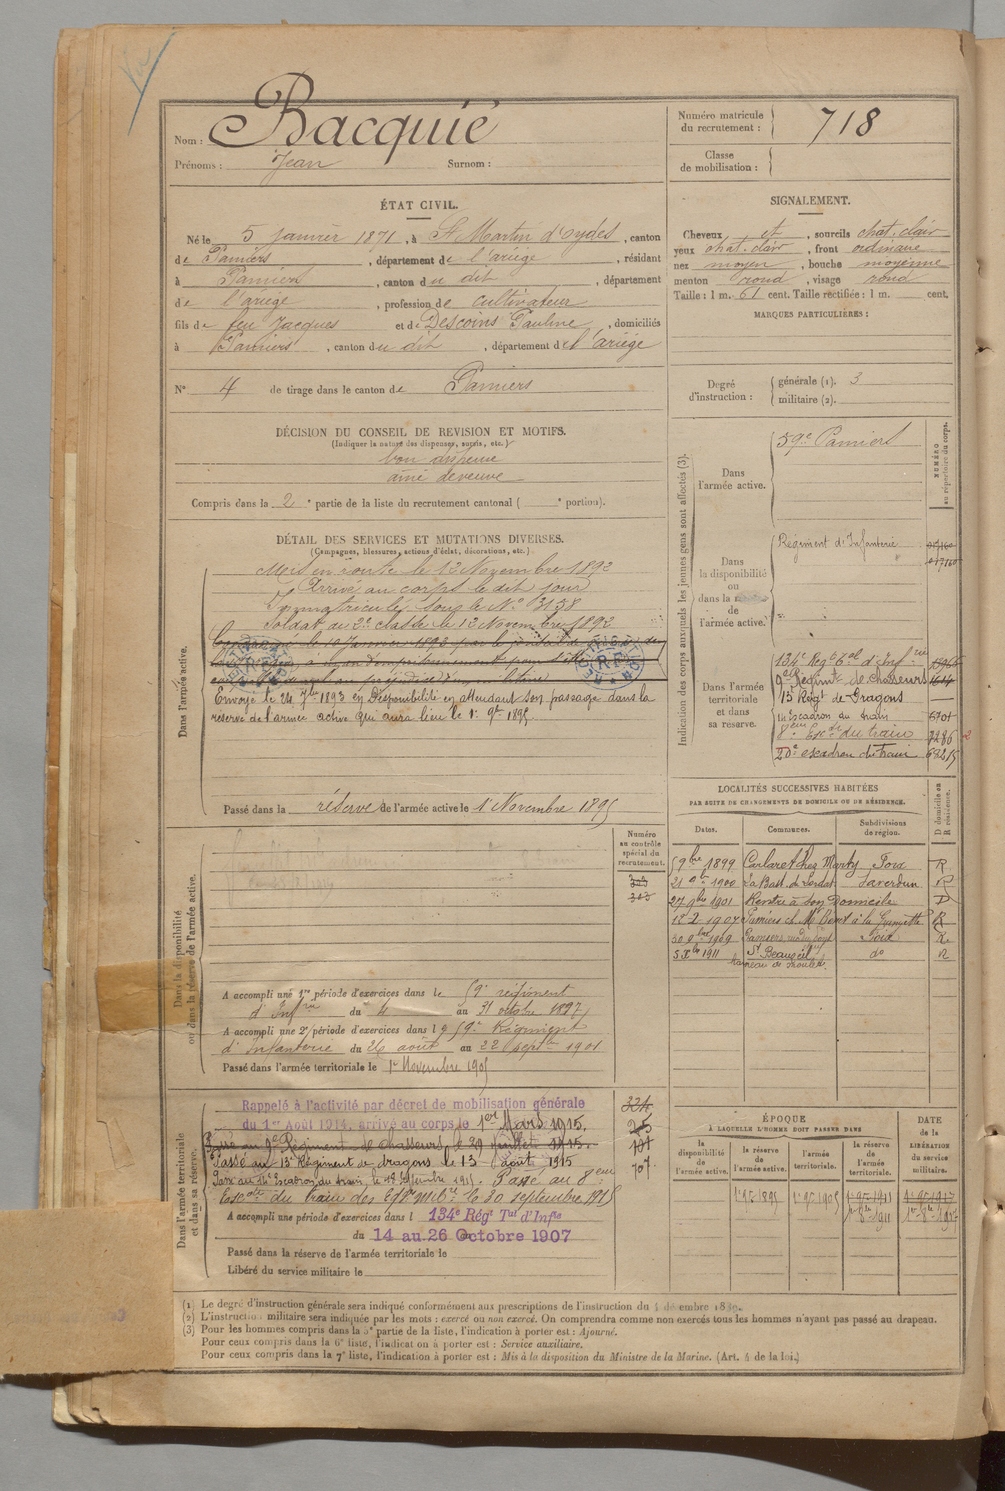 Vu
Nom : Bacquié
Prénoms : Jean Surnom :
Numéro matricule du recrutement : 718
Classe de mobilisation :
ÉTAT CIVIL.
Né le 5 janvier 1871, à St Martin d'Oydes, canton
de Pamiers, département de l'ariège, résidant
à Pamiers, canton du dit, département
de l'ariège, profession de cultivateur
fils de feu Jacques et de Descoins Pauline, domiciliés
à Pamiers, canton du dit, département de l'ariège
N° 4 de tirage dans le canton de Pamiers
SIGNALEMENT.
Cheveux et, sourcils chat. clair
yeux chat. clair, front ordinaire
nez moyen, bouche moyenne
menton rond, visage rond
Taille : 1 m. 61 cent. Taille rectifiée : 1 m. cent.
MARQUES PARTICULIÈRES :
Degré d'instruction : générale (1). 3
militaire (2).
DÉCISION DU CONSEIL DE REVISION ET MOTIFS.
(Indiquer la nature des dispenses, sursis, etc.)
bon dispensé
ainé de veuve
Compris dans la 2e partie de la liste du recrutement cantonal ( e portion).
DÉTAIL DES SERVICES ET MUTATIONS DIVERSES.
(Campagnes, blessures, actions d'éclat, décorations, etc.)
Dans l'armée active.
Mis en route le 12 Novembre 1892
Arrivé au corps le dit jour
Immatriculé sous le N° 3158
Soldat de 2e classe le 12 Novembre 1892
Envoyé le 24 7bre 1893 en Disponibilité en attendant son passage dans la
réserve de l'armée active qui aura lieu le 1er 9bre 1895.
Passé dans la réserve de l'armée active le 1er Novembre 1895
Indication des corps auxquels les jeunes gens sont affectés (3).
NUMÉRO au répertoire du corps.
Dans l'armée active.
59e Pamiers
Dans la disponibilité ou dans la réserve de l'armée active.
Régiment d'Infanterie
Dans l'armée territoriale et dans sa réserve.
134e Régt Tal d'Infrie
9e Régimt de chasseurs 1614
13e Régt de Dragons
Escadron du train 6701
8ème Escon du train 3286
20e escadron du train
LOCALITÉS SUCCESSIVES HABITÉES
PAR SUITE DE CHANGEMENTS DE DOMICILE OU DE RÉSIDENCE.
Dates. Communes. Subdivisions de région. D domicile ou R résidence.
9bre 1899 Carlaret chez Marty Foix R
21 1900 La Bast. de Lordat Saverdun R
27 9bre 1901 Rentré à son Domicile D
12 2 1907 Pamiers ch. Mr R
30 9bre 1909 Pamiers Foix R
5 Xbre 1911 St do R
hameau de
Numéro au contrôle spécial du recrutement.
323
313
Dans la disponibilité ou dans la réserve de l'armée active.
A accompli une 1re période d'exercices dans le 59e régiment
d'Infrie du 4 au 31 octbre 1897
A accompli une 2e période d'exercices dans le 59e Régiment
d'Infanterie du 26 août au 22 septbre 1901
Passé dans l'armée territoriale le 1er Novembre 1905
Dans l'armée territoriale et dans sa réserve.
Rappelé à l'activité par décret de mobilisation générale
du 1er Août 1914, arrivé au corps le 1er Mars 1915,
Passé au 9e Régiment de chasseurs, le 29 juillet 1915.
Passé au 13e Régiment de dragons le 13 août 1915
Passé au Escadron du train, le 18 septembre 1915. Passé au 8ème
Escon du train des le 30 septembre 1915
324
25
101
707
A accompli une période d'exercices dans l 134e Régt Tal d'Infie
du 14 au 26 Octobre 1907
Passé dans la réserve de l'armée territoriale le
Libéré du service militaire le
ÉPOQUE
À LAQUELLE L'HOMME DOIT PASSER DANS
la disponibilité de l'armée active. la réserve de l'armée active. l'armée territoriale. la réserve de l'armée territoriale.
DATE de la LIBÉRATION du service militaire.
1er 9bre 1895 1er 9bre 1905 1er 9bre 1911 1er 9bre 1917
(1) Le degré d'instruction générale sera indiqué conformément aux prescriptions de l'instruction du 4 décembre 1889.
(2) L'instruction militaire sera indiquée par les mots : exercé ou non exercé. On comprendra comme non exercés tous les hommes n'ayant pas passé au drapeau.
(3) Pour les hommes compris dans la 5e partie de la liste, l'indication à porter est : Ajourné.
Pour ceux compris dans la 6e liste, l'indication à porter est : Service auxiliaire.
Pour ceux compris dans la 7e liste, l'indication à porter est : Mis à la disposition du Ministre de la Marine. (Art. 4 de la loi.)